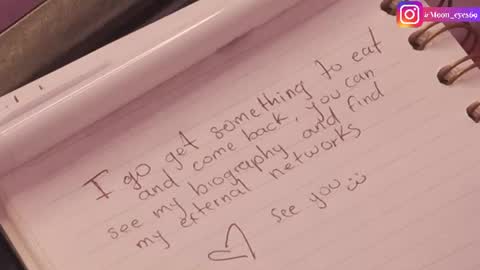 @Moon_eyes69
I go get something to eat
and come back, you can
see my biography and find
my external networks
see you